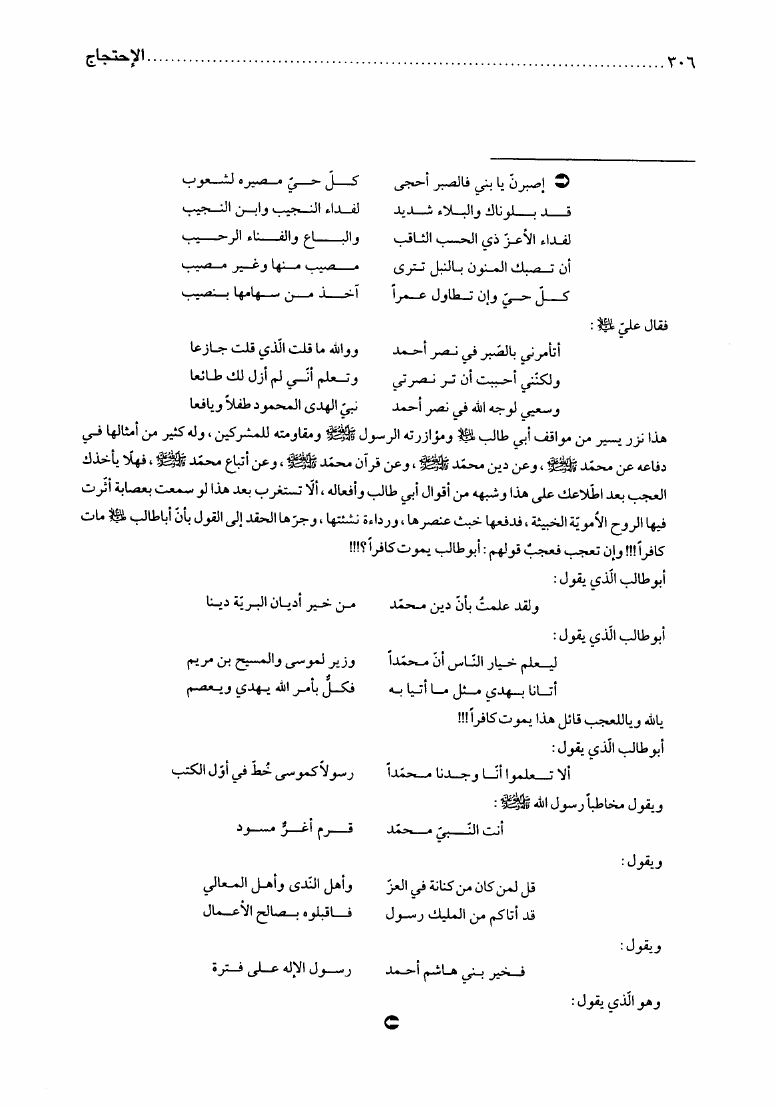 ٣٠٦ ........................................................................ الإحتجاج
إصبرنّ يا بني فالصبر أحجى كـلّ حـيّ مـصيره لشـعوب
قـد بـلوناك والبـلاء شـديد لفـداء النـجيب وابـن النـجيب
لفداء الأعـزّ ذي الحسب الثـاقب والبـاع والفـناء الرحـيب
أن تـصبك المنون بـالنبل تـترى مـصيب مـنها وغـير مـصيب
كـلّ حـيّ وإن تـطاول عـمراً آخـذ مـن سـهامها بـنصيب
فقال عليّ ﷺ :
أتأمرني بالصّبر في نـصر أحـمد ووالله ما قلت الّذي قلت جـازعا
ولكنّني أحـببت أن تـر نـصرتي وتـعلم أنّـي لم أزل لك طـائعا
وسعيي لوجه الله في نصر أحمد نبيّ الهدى المحمود طفلاً ويافعا
هذا نزر يسير من مواقف أبي طالب ﷺ ومؤازرته الرسول ﷺ ومقاومته للمشركين ، وله كثير من أمثالها فـي
دفاعه عن محمّد ﷺ ، وعن دين محمّد ﷺ ، وعن قرآن محمّد ﷺ ، وعن أتباع محمّد ﷺ ، فهلّا يأخذك
العجب بعد اطّلاعك على هذا وشبهه من أقوال أبي طالب وأفعاله ، ألّا تستغرب بعد هذا لو سمعت بعصابة أثّرت
فيها الروح الأمويّة الخبيثة ، فدفعها خبث عنصرها ، ورداءة نشئتها ، وجرّها الحقد إلى القول بأنّ أباطالب ﷺ مات
كافراً !!! وإن تعجب فعجبٌ قولهم : أبوطالب يموت كافراً ؟!!!
أبوطالب الّذي يقول :
ولقد علمتُ بأنّ دين مـحمّد مـن خـير أديـان البـريّة ديـنا
أبوطالب الّذي يقول :
ليـعلم خـيار النّـاس أنّ مـحمّداً وزير لموسى والمسيح بن مريم
أتـانا بـهدي مـثل مـا أتيا بـه فكـلٌّ بأمـر الله يـهدي ويـعصم
يالله وياللعجب قائل هذا يموت كافراً !!!
أبوطالب الّذي يقول :
ألا تـعلموا أنّـا وجـدنا مـحمّداً رسولاً كموسى خُطّ في أوّل الكتب
ويقول مخاطباً رسول الله ﷺ :
أنت النّـبيّ مـحمّد قـرم أغـرٌّ مـسود
ويقول :
قل لمن كان من كنانة في العزّ وأهل النّدى وأهـل المـعالي
قد أتاكم من المليك رسـول فـاقبلوه بـصالح الأعـمال
ويقول :
فـخير بـني هـاشم أحـمد رسـول الإله عـلى فـترة
وهو الّذي يقول :